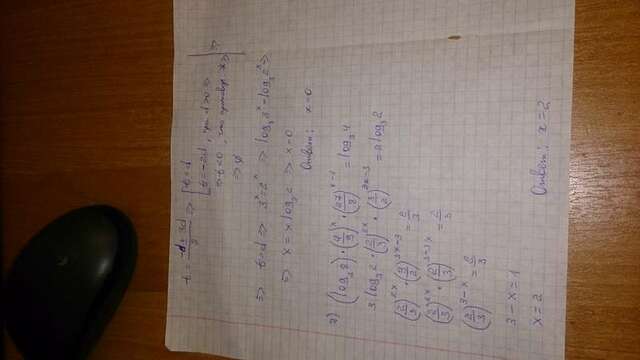 t = (-d ± 3d)/2 ⇒ [ t = d
t = -2d, при d > 0 ⇒
⇒ t < 0, что
⇒ ∅
⇒ t = d ⇒ 3^x = 2^x ⇒ log₃3^x = log₃2^x ⇒
⇒ x = x log₃2 ⇒ x = 0
Ответ: x = 0
(log₃8) · (4/9)^x · (27/8)^(x-1) = log₃4
3 log₃2 · (2/3)^(2x) · (3/2)^(3x-3) = 2 log₃2
(2/3)^(2x) · (3/2)^(3x-3) = 2/3
(2/3)^(2x) · (2/3)^(3-3x) = 2/3
(2/3)^(3-x) = 2/3
3 - x = 1
x = 2 Ответ: x = 2